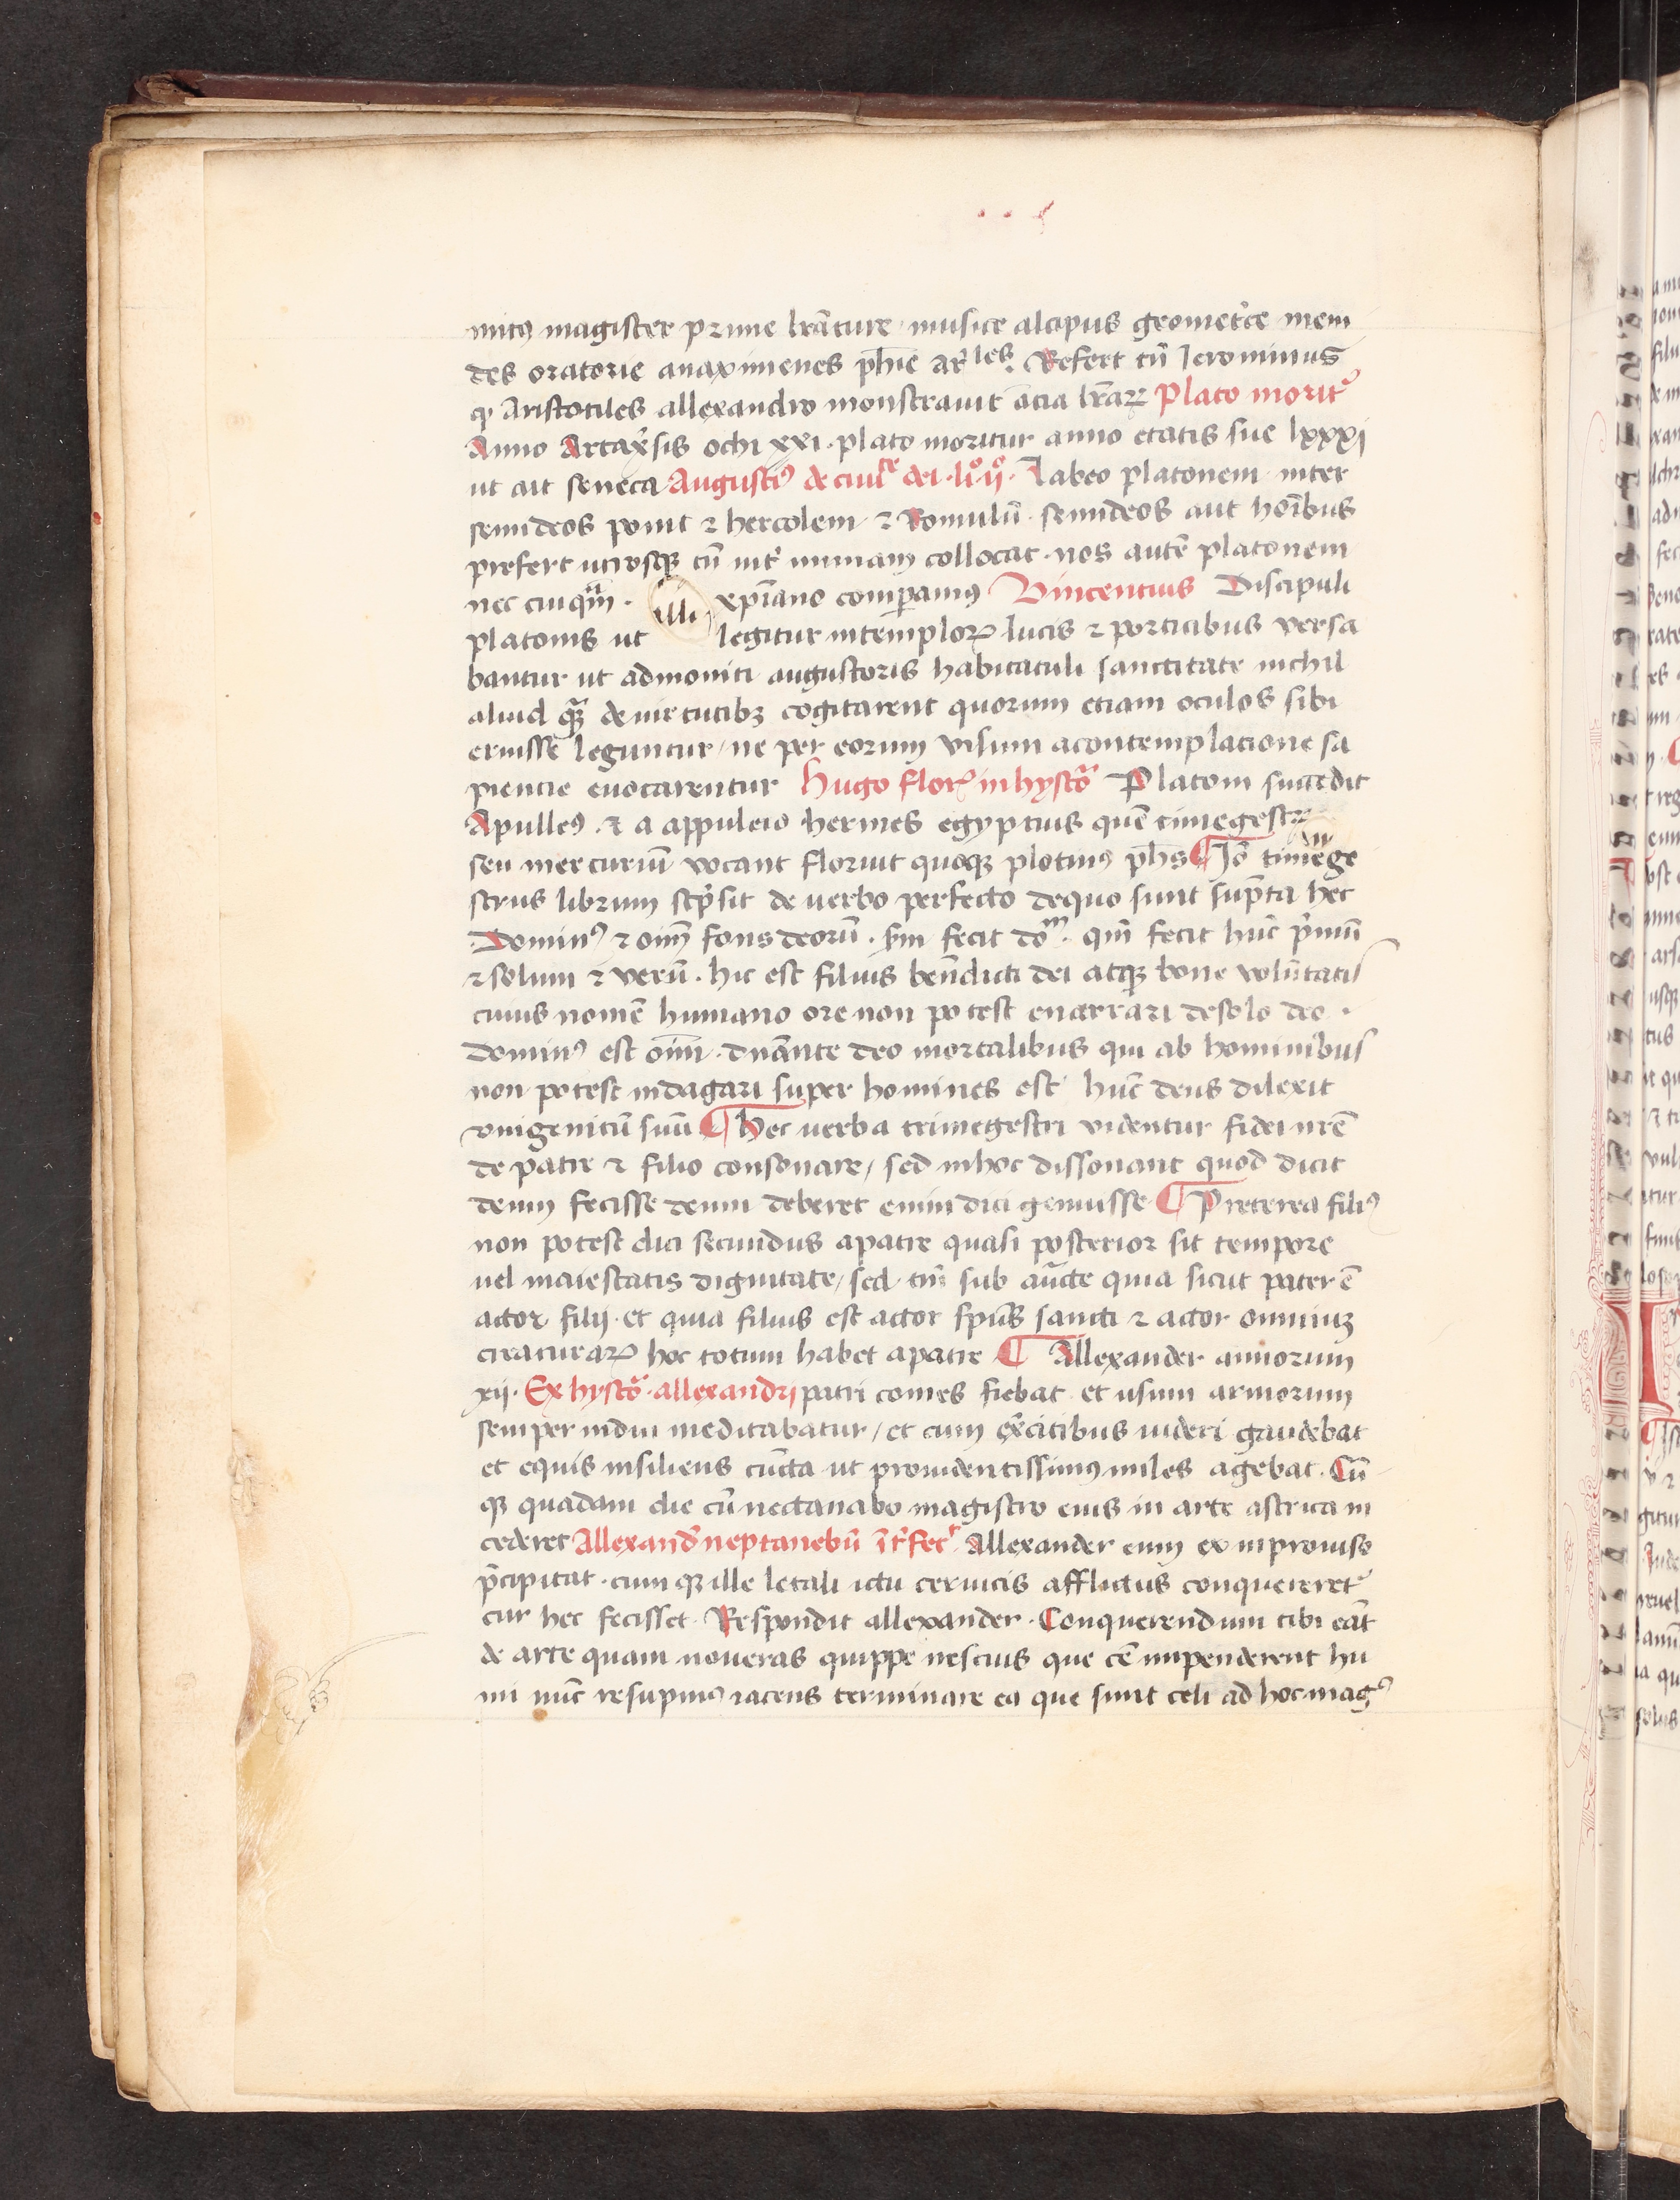 mitꝰ magister prime lr̄ature · musice alcipus geometᵃce mem
des oratorie anaximenes ph̄ie ar̄les. Refert tn̄ Ieronimus
ꝙ Aristotiles allexandro monstrauit ōcia lr̄aꝝ Plato moritᵘ
Anno Artax̄sis ochi xxi · plato moritur anno etatis sue lxxxj
ut ait seneca Augustiꝰ de ciuiᵗᵉ dei · liº · ijº · Labeo platonem inter
semideos ponit ⁊ hercolem ⁊ Romulū · semideos aut hoībus
prefert utrosqꝫ tn̄ int̉ numam collocat · nos autē platonem
nec cuiqᵃ̄m · illi xp̄iano comꝑamꝰ Vincentius Discipuli
platonis ut legitur in temploꝝ lucis ⁊ porticibus versa
bantur ut admoniti augustoris habitaculi sanctitate nichil
aliud qᵃꝫ de uirtutibꝫ cogitarent quorum etiam oculos sibi
eruisse leguntur / ne per eorum visum a contemplacione sa
piencie euocarentur Hugo floꝝ in hystoᵃ Platoni succedit
Apulleꝰ · ⁊ a appuleio hermes egyptius quē timegestr
seu mercuriū vocant floruit quoqꝫ plotinꝰ ph̄s ¶ Iō timege
strus librum scp̄sit de uerbo perfecto de quo sunt sup̄ta hec
Dominꝰ ⁊ oīm fons deorū · s̄m fecit doᵐ · qm̄ fecit hūc p̉mū
⁊ solum ⁊ verū · hic est filius ben̄dicti dei atqꝫ bone volūtatis
cuius nomē humano ore non potest enarrari de solo deo ·
Dominꝰ est oīm · dn̄ante deo mortalibus qui ab hominibus
non potest indagari super homines est hūc deus dilexit
vnigenitū suū ¶ Hec uerba trimegestri videntur fidei nr̄e
de patre ⁊ filio consonare / sed in hoc dissonant quod dicit
deum fecisse deum deberet enim dici genuisse ¶ Preterea filiꝰ
non potest dici secundus a patre quasi posterior sit tempore
uel maiestatis dignitate / sed tm̄ sub auc̄te quia sicut pater ē
actor filij · et quia filius est actor sp̄us sancti ⁊ actor omniuꝫ
creaturaꝝ hoc totum habet a patre ¶ Allexander annorum
xij · Ex hystoᵃ · allexandri patri comes fiebat et usum armorum
semper indui meditabatur / et cum ex̉citibus uideri gaudebat
et equis insiliens cūcta ut prouidentissimꝰ miles agebat · Cū
qꝫ quadam die cū nectanabo magistro eius in arte astrica in
cederet Allexandᵉ neptanebū īt̉fecᵗ Allexander eum ex improuiso
p̄cipitat · cum qꝫ ille letali ictu ceruicis afflictus conquereretᵘ
cur hec fecisset · Respondit allexander · Conquerendum tibi eāt
de arte quam noueras quippe nescius que tē impenderent hu
mi nūc resupinꝰ iacens terminare ea que sunt celi ad hoc magꝰ